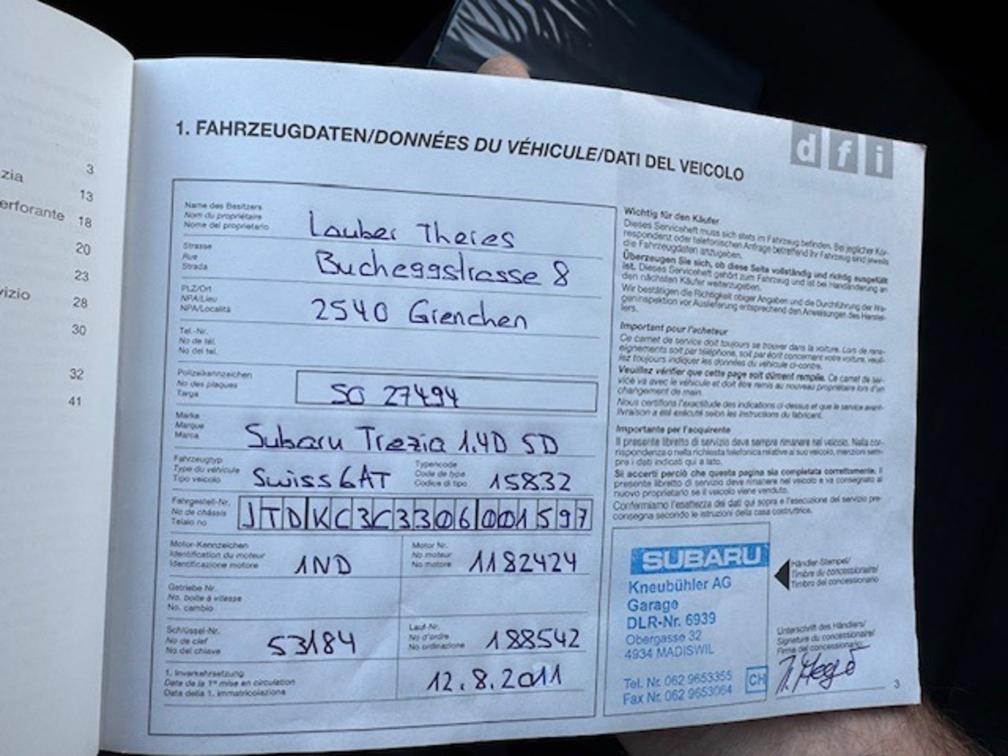 3
zia
13
erforante 18
20
23
vizio 28
30
32
41
1. FAHRZEUGDATEN/DONNÉES DU VÉHICULE/DATI DEL VEICOLO
dfi
Name des Besitzers
Nom du propriétaire
Nome del proprietario
Lauber Theres
Strasse
Rue
Strada
Bucheggstrasse 8
PLZ/Ort
NPA/Lieu
NPA/Località
2540 Grenchen
Tel.-Nr.
No de tél.
No del tel.
Polizeikennzeichen
No des plaques
Targa
SO 27494
Marke
Marque
Marca
Subaru Trezia 1.4D SD
Fahrzeugtyp
Type du véhicule
Tipo veicolo
Swiss 6AT
Typencode
Code de type
Codice di tipo
15832
Fahrgestell-Nr.
No de châssis
Telaio no
JTDKC3C3306001597
Motor-Kennzeichen
Identification du moteur
Identificazione motore
1ND
Motor Nr.
No moteur
No motore
1182424
Getriebe Nr.
No. boîte à vitesse
No. cambio
Schlüssel-Nr.
No de clef
No del chiave
53184
Lauf-Nr.
No d'ordre
No ordinazione
188542
1. Inverkehrsetzung
Date de la 1re mise en circulation
Data della 1. immatricolazione
12.8.2011
Wichtig für den Käufer
Dieses Serviceheft muss sich stets im Fahrzeug befinden. Bei jeglicher Kor-
respondenz oder telefonischen Anfrage betreffend Ihr Fahrzeug sind jeweils
die Fahrzeugdaten anzugeben.
Überzeugen Sie sich, ob diese Seite vollständig und richtig ausgefüllt
ist. Dieses Serviceheft gehört zum Fahrzeug und ist bei Handänderung an
den nächsten Käufer weiterzugeben.
Wir bestätigen die Richtigkeit obiger Angaben und die Durchführung der Wa-
geninspektion vor Auslieferung entsprechend den Anweisungen des Herstel-
lers.
Important pour l'acheteur
Ce carnet de service doit toujours se trouver dans la voiture. Lors de rens-
eignements soit par téléphone, soit par écrit concernant votre voiture, veuil-
lez toujours indiquer les données du véhicule ci-contre.
Veuillez vérifier que cette page soit dûment remplie. Ce carnet de ser-
vice va avec le véhicule et doit être remis au nouveau propriétaire lors d'un
changement de main.
Nous certifions l'exactitude des indications ci-dessus et que le service avant-
livraison a été exécuté selon les instructions du fabricant.
Importante per l'acquirente
Il presente libretto di servizio deve sempre rimanere nel veicolo. Nella cor-
rispondenza o nella richiesta telefonica relative al suo veicolo, menzioni sem-
pre i dati indicati qui a lato.
Si accerti perciò che questa pagina sia completata correttamente. Il
presente libretto di servizio deve rimanere nel veicolo e va consegnato al
nuovo proprietario se il veicolo viene venduto.
Confermiamo l'esattezza dei dati qui sopra e l'esecuzione del servizio pre-
consegna secondo le istruzioni della casa costruttrice.
SUBARU
Kneubühler AG
Garage
DLR-Nr. 6939
Obergasse 32
4934 MADISWIL
Tel. Nr. 062 9653355
Fax Nr. 062 9653064
CH
Händler-Stempel/
Timbre du concessionnaire/
Timbro del concessionario
Unterschrift des Händlers/
Signature du concessionnaire/
Firma del concessionario:
3